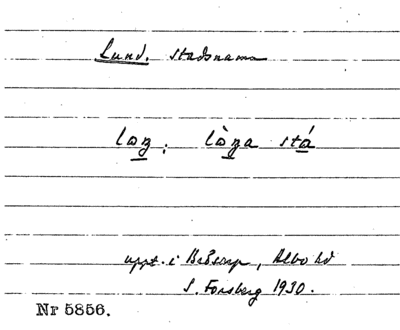 Lund. stadsnamn
loŋ; lòŋa stá
uppt. i Bråsarp, Albo hd
S. Forsberg 1930.
Nr 5856.